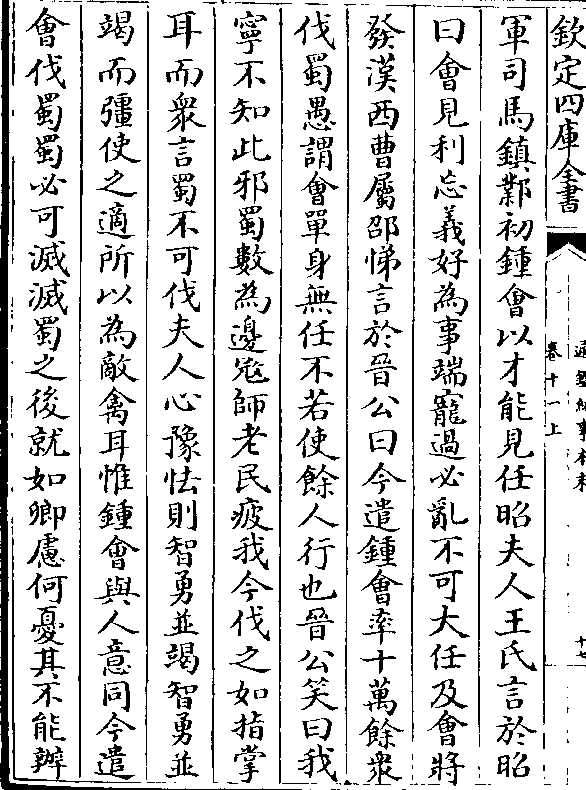 欽定四庫全書
通鑑紀事本末
卷十一上
軍司馬鎮鄴初鍾會以才能見任昭夫人王氏言於昭
曰會見利忘義好為事端寵過必亂不可大任及會將
發漢西曹屬邵悌言於晉公曰今遣鍾會率十萬餘衆
伐蜀愚謂會單身無任不若使餘人行也晉公笑曰我
寧不知此邪蜀數為邊寇師老民疲我今伐之如指掌
耳而衆言蜀不可伐夫人心豫怯則智勇並竭智勇並
竭而彊使之適所以為敵禽耳惟鍾會與人意同今遣
會伐蜀蜀必可滅滅蜀之後就如卿慮何憂其不能辦